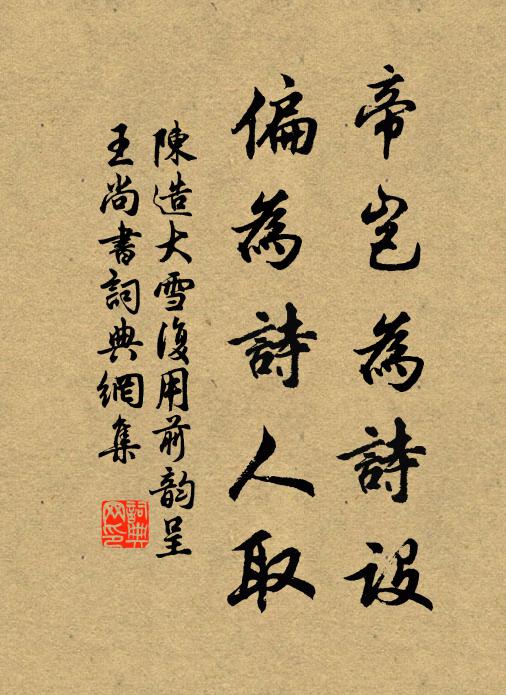 帝豈為詩設
偏為詩人取
陳造大雪復用前韵呈
王尚書詞典網集
詞典網印